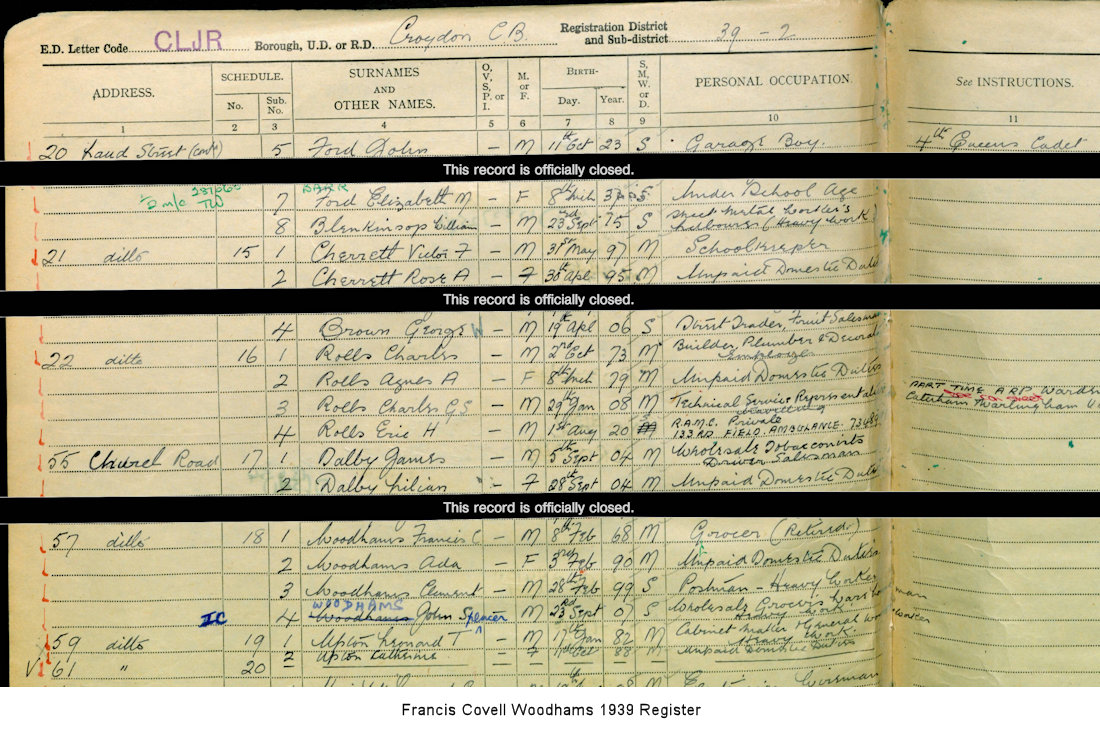 E.D. Letter Code CLJR Borough, U.D. or R.D. Croydon C B Registration District and Sub-district 39 - 2
ADDRESS. SCHEDULE. SURNAMES AND OTHER NAMES. O, V, S, P, or I. M. or F. BIRTH- S, M, W, or D. PERSONAL OCCUPATION. See INSTRUCTIONS.
No. Sub. No. Day. Year.
1 2 3 4 5 6 7 8 9 10 11
20 Laud Street (cont) 5 Ford John - M 11th Oct 23 S Garage Boy. 4th Queens Cadet
This record is officially closed.
D m/c TW BARR
7 Ford Elizabeth M - F 8th Mch 37 S Under School Age
8 Blenkinsop William - M 23rd Sept 75 S Sheet Metal Worker's Labourer (Heavy Work)
21 ditto 15 1 Cherrett Victor F - M 31st May 97 M Schoolkeeper
2 Cherrett Rose A - F 30th Apl 95 M Unpaid Domestic Duties
This record is officially closed.
4 Brown George W - M 19th Apl 06 S Street Trader, Fruit Salesman
22 ditto 16 1 Rolls Charles - M 2nd Oct 73 M Builder, Plumber & Decorator Employer
2 Rolls Agnes A - F 8th Mch 79 M Unpaid Domestic Duties
3 Rolls Charles G S - M 29th Jan 08 M Technical Service Representative PART TIME A R P Warden Caterham Warlingham
4 Rolls Eric H - M 1st Aug 20 R.A.M.C. Private 133RD FIELD AMBULANCE
55 Church Road 17 1 Dalby James - M 5th Sept 04 M Wholesale Tobacconists Driver Salesman
2 Dalby Lilian - F 28th Sept 04 M Unpaid Domestic Duties
This record is officially closed.
57 ditto 18 1 Woodhams Francis C - M 8th Feb 68 M Grocer (Retired)
2 Woodhams Ada - F 3rd Feb 90 M Unpaid Domestic Duties
3 Woodhams Clement - M 28th Feb 99 S Postman - Heavy Worker
WOODHAMS
IC 4 Woodhams John Spencer - M 23rd Sept 07 S Wholesale Grocer's Warehouseman Heavy Work
59 ditto 19 1 Upton Leonard T - M 17th Jan 82 M Cabinet Maker & General Heavy Work
2 Upton Catherine - F Oct 88 M Unpaid Domestic Duties
V 61 " 20 - - - - - -
Francis Covell Woodhams 1939 Register